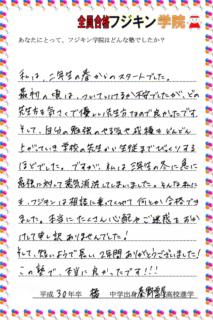 全員合格フジキン学院
あなたにとって、フジキン学院はどんな塾でしたか?
私は、二年生の春からのスタートでした。
最初の頃は、ついていけるか不安でしたが、どの
先生方も気さくで優しい先生方なので良かったです。
そして、自分の勉強のやる気や成績もどんどん
上がっていき学校の先生がい生徒までびっくりする
ほどでした。ですが、私は三年生の冬に
勉強に対して意気消沈してしまいました。そんな私に
も、フジキンは相談に乗ってくれて何とか合格でき
ました。本当にたくさん心配やご迷惑をおか
けして申し訳ありませんでした!
そして、短いようで長い2年間ありがとうございました!
この塾で、本当に良かったです!!!
平成30年卒 橘 中学出身 秦野曽屋 高校進学